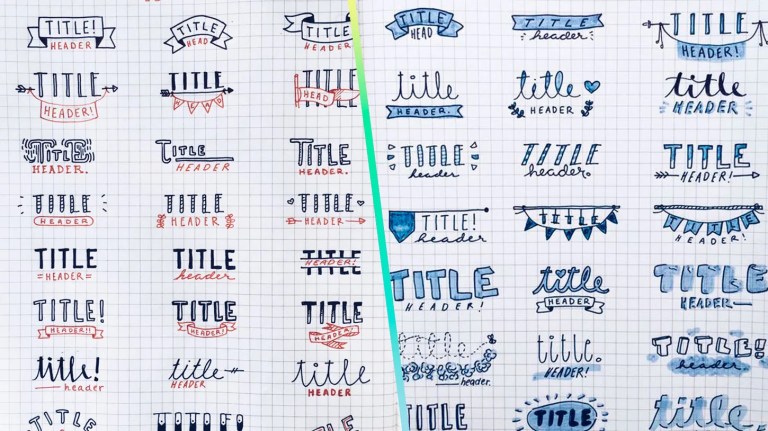 TITLE!
HEADER
TITLE
HEAD
TITLE
HEADER
TITLE
HEADER!
TITLE
HEAD
TITLE
HEAD
TITLE
HEADER.
TITLE
HEADER
TITLE
HEADER.
TITLE
HEADER
TITLE
HEADER
TITLE
HEADER
TITLE
=HEADER=
TITLE
header
TITLE
HEADER!
TITLE!
HEADER!!
TITLE
HEADER!
TITLE
HEADER!
title!
header
title
HEADER
title
HEADER
TITLE
TITLE!
TITLE
TITLE
HEAD
TITLE
header
TITLE
HEADER!
title
HEADER.
title
HEADER
title
HEADER
TITLE
header
TITLE
header.
TITLE
HEADER!
TITLE!
header
TITLE
TITLE
HEADER!
TITLE
HEADER!
title
HEADER
TITLE
HEADER
title
header.
title.
HEADER!
TITLE!
header.
TITLE
TITLE
title.